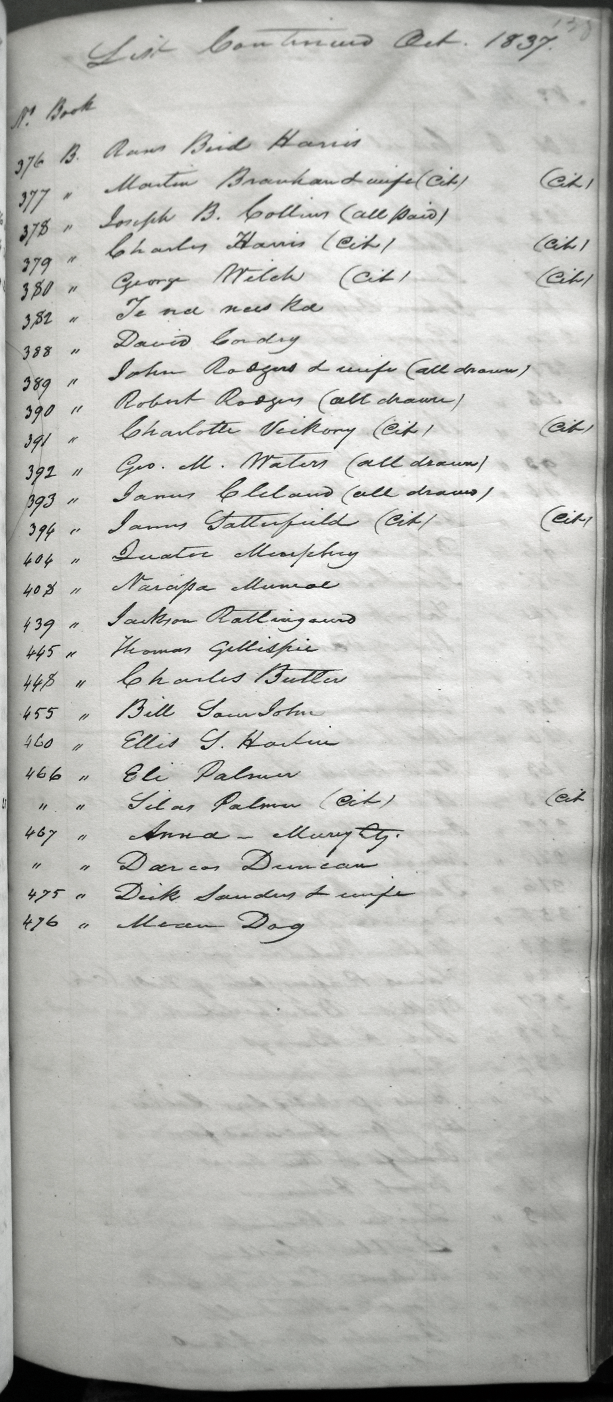 138
List Continued Oct. 1837.
No. Book
376 B. Bird Harris
377 " Martin Branham & wife (Cit) (Cit)
378 " Joseph B. Collins (all paid)
379 " Charles Harris (Cit) (Cit)
380 " George Welch (Cit) (Cit)
382 " Te na nees ka
388 " David Cordry
389 " John Rodgers & wife (all drawn)
390 " Robert Rodgers (all drawn)
391 " Charlotte Vickory (Cit) (Cit)
392 " Geo. M. Waters (all drawn)
393 " James Cleland (all drawn)
394 " James Satterfield (Cit) (Cit)
404 " Murphy
408 " Munroe
439 " Jackson Rattlingourd
445 " Thomas Gillispie
448 " Charles Butler
455 " Bill Sam John
460 " Ellis S. Harlin
466 " Eli Palmer
" " Silas Palmer (Cit) (Cit
467 " Anna Murphy.
" " Darcas Duncan
475 " Dick Sanders & wife
476 " Mean Dog